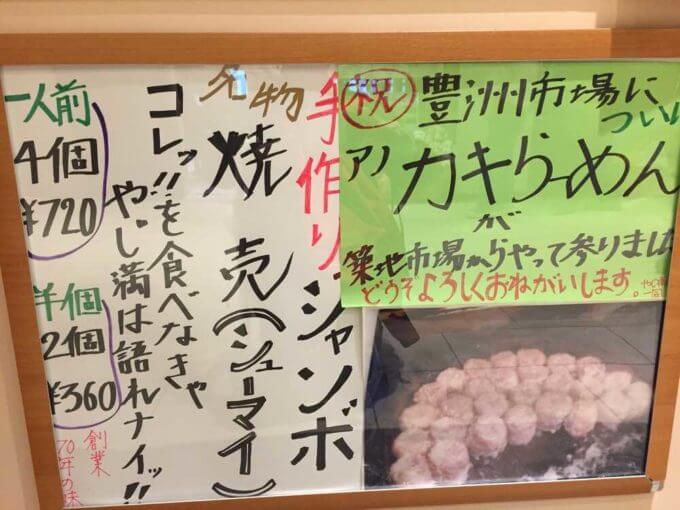 祝 豊洲市場に
ついに
アノ カキらーめん
が
築地市場からやって参りまし
どうぞよろしくおねがいします。
手作りジャンボ
名物
焼売(シューマイ)
コレッ!!を食べなきゃ
やじ満は語れナイッ!!
一人前
4個
¥720
半個
2個
¥360
創業
70年の味